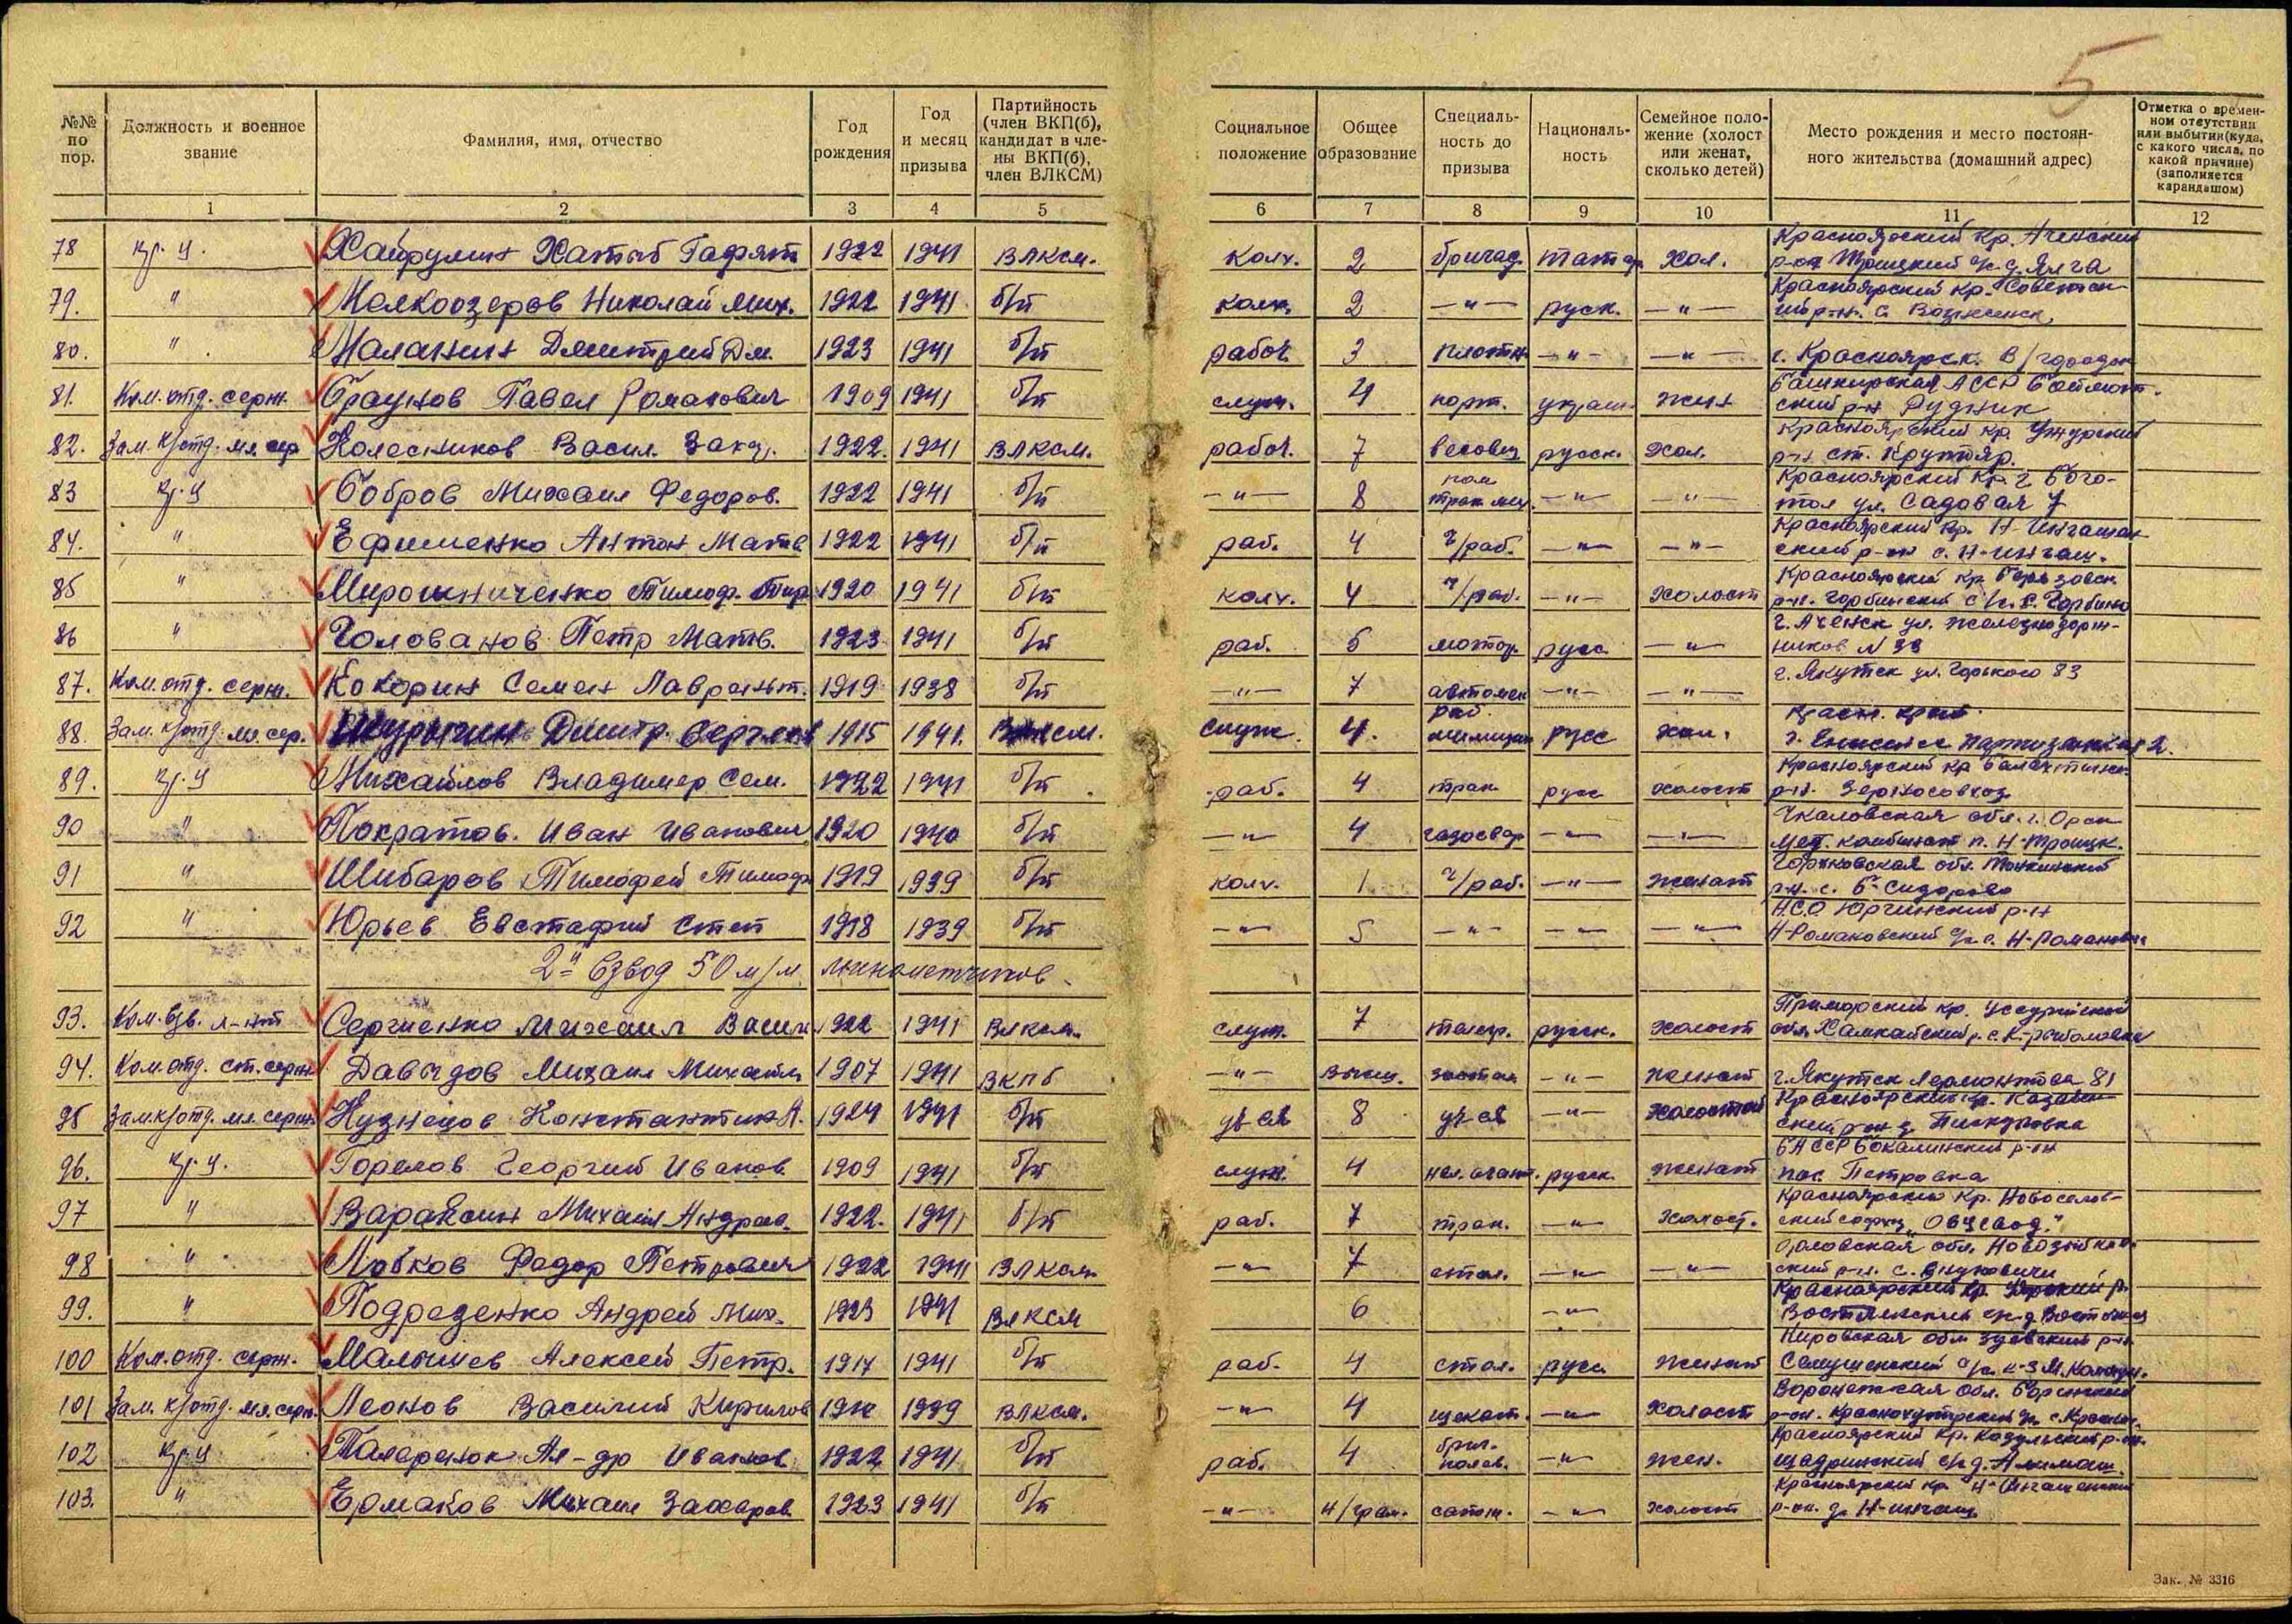 5
№№ по пор.
Должность и военное звание
Фамилия, имя, отчество
Год рождения
Год и месяц призыва
Партийность (член ВКП(б), кандидат в члены ВКП(б), член ВЛКСМ)
Социальное положение
Общее образование
Специальность до призыва
Национальность
Семейное положение (холост или женат, сколько детей)
Место рождения и место постоянного жительства (домашний адрес)
Отметка о временном отсутствии или выбытии (куда, с какого числа, по какой причине) (заполняется карандашом)
1 2 3 4 5 6 7 8 9 10 11 12
78 кр-ц. Хайрулин Хатып Гафят 1922 1941 ВЛКСМ. колх. 2 бригад. татар хол. Красноярский кр. Ачинский р-он Троицкий с/с д. Ялга
79. " Мелкоозеров Николай Мих. 1922 1941 б/п колх. 2 —"— русск. —"— Красноярский кр. Советский р-н. с. Вознесенск
80. " Маланин Дмитрий Дм. 1923 1941 б/п рабоч. 3 плотн. —"— —"— г. Красноярск. В/городок
81. Ком. отд. серж. Браунов Павел Романович 1909 1941 б/п служ. 4 норм. украин. жен Башкирская АССР Баймакский р-н Рудник
82. Зам. к/отд. мл. сер Колесников Васил. Заха. 1922. 1941 ВЛКСМ. рабоч. 7 весовщ русск. хол. Красноярский кр. Ужурский р-н ст. Крутояр.
83 кр-ц Бобров Михаил Федоров. 1922 1941 б/п —"— 8 пом трак мех. —"— —"— Красноярский кр г Боготол ул. Садовая 7
84. " Ефименко Антон Матв 1922 1941 б/п раб. 4 ч/раб. —"— —"— Красноярский кр. Н-Ингашский р-он с. Н-Ингаш.
85 " Мирошниченко Тимоф. 1920 1941 б/п колх. 4 ч/раб. —"— холост Красноярский кр Березовск р-н. Горбинский с/с. с. Горбино
86 " Голованов Петр Матв. 1923 1941 б/п раб. 5 мотор. русс. —"— г. Ачинск ул. Железнодорожников N 99
87. Ком. отд. серж. Кокорин Семен Лаврент. 1919 1938 б/п —"— 7 автомех —"— —"— г. Якутск ул. Горького 83
88. Зам. к/отд. мл. сер. Шурыгин Дмитр. Сергеев 1915 1941. служ. 4. раб. милиции русс хол. Красн. край г. Енисейск Партизанская 2.
89. кр-ц Михайлов Владимер Сем. 1922 1941 б/п раб. 4 трак. русс холост Красноярский кр Балахтинск р-н. Зерносовхоз
90 " Пократов. Иван Иванович 1920 1940 б/п —"— 4 газосвар —"— —"— Чкаловская обл. г. Орск Мет. комбинат п. Н-Троицк.
91 " Шибаров Тимофей Тимоф 1919 1939 б/п колх. 1 ч/раб. —"— женат Горьковская обл. Тонкинский р-н. с. Б-Сидорово
92 " Юрьев Евстафий Степ 1918 1939 б/п —"— 5 —"— —"— —"— Н.С.О Юргинский р-н Н-Романовский с/с с. Н-Романовка
2й Взвод 50 м/м. минометчиков.
93. Ком. взв. л-нт Сергиенко Михаил Васил 1922 1941 ВЛКСМ. служ. 7 токар. русск. холост Приморский кр. Уссурийской обл. Ханкайский р. с. К-Рыболовка
94. Ком. отд. ст. серж Давыдов Михаил Михайл 1907 1941 ВКПб —"— высш. зоотех —"— женат г. Якутск Лермонтова 81
95 Зам. к/отд. мл. серж. Кузнецов Константин А. 1924 1941 б/п уч-ся 8 уч-ся —"— холостой Красноярский кр. Казачинский р-он д. Пискуновка
96. кр-ц. Горелов Георгий Иванов 1909 1941 б/п служ. 4 нал. агент. русск. женат БАССР Бокалинский р-он пос. Петровка
97 " Вараксин Михаил Андреев. 1922. 1941 б/п раб. 7 трак. —"— холост. Красноярский кр. Новоселовский совхоз "Овцевод."
98 " Лобков Федор Петрович 1922 1941 ВЛКСМ —"— 7 стол. —"— —"— Орловская обл. Новозыбковский р-н. с. Внуковичи
99. " Подрезенко Андрей Мих. 1923 1941 ВЛКСМ 6 —"— Красноярский кр. Уярский р. Востокинский с/с д Восточная
100 Ком. отд. серж. Малышев Алексей Петр. 1917 1941 б/п раб. 4 стол. русск женат Кировская обл Зуевский р-н Семушинский с/с
101 Зам. к/отд. мл. серж. Леонов Василий Кирилов 1939 ВЛКСМ. —"— 4 щекат. —"— холост Воронежская обл. Боринский р-он.
102 кр-ц Таларенок Ал-др Иванов 1922 1941 б/п раб. 4 бриг. полев. —"— жен. Красноярский кр. Козульский р-он. Шадринский с/с д. Алимаш.
103. " Ермаков Михаил Захаров 1923 1941 б/п —"— н/грам. сапож. —"— холост Красноярский кр Н-Ингашский р-он. д. Н-Ингаш
Зак. № 3316